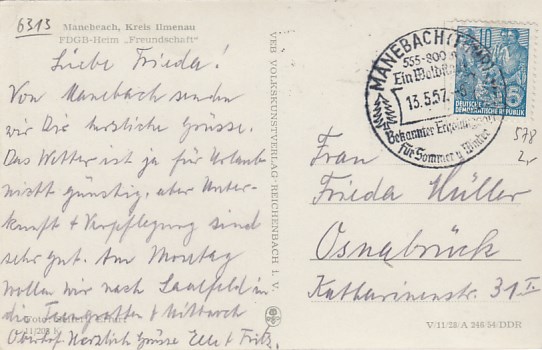 6313
Manebach, Kreis Ilmenau
FDGB-Heim „Freundschaft"
Liebe Frieda!
Von Manebach senden
wir Dir herzliche Grüsse.
Das Wetter ist ja für Urlaub
nicht günstig, aber Unter-
kunft + Verpflegung sind
sehr gut. Am Montag
wollen wir nach Saalfeld in
die Feengrotten + Mittwoch
Oberhof. Herzlich Grüsse Elle + Fritz.
11/208
VEB VOLKSKUNSTVERLAG · REICHENBACH I. V.
MANEBACH (THÜR
555-800
Ein Waldid
13.5.57.
Bekannter Erholungsort
für Sommer u Winter
DEUTSCHE
DEMOKRATISCHE REPUBLIK
578
2,-
Frau
Frieda Müller
Osnabrück
Katharinenstr. 31 I
V/11/28/A 246/54/DDR